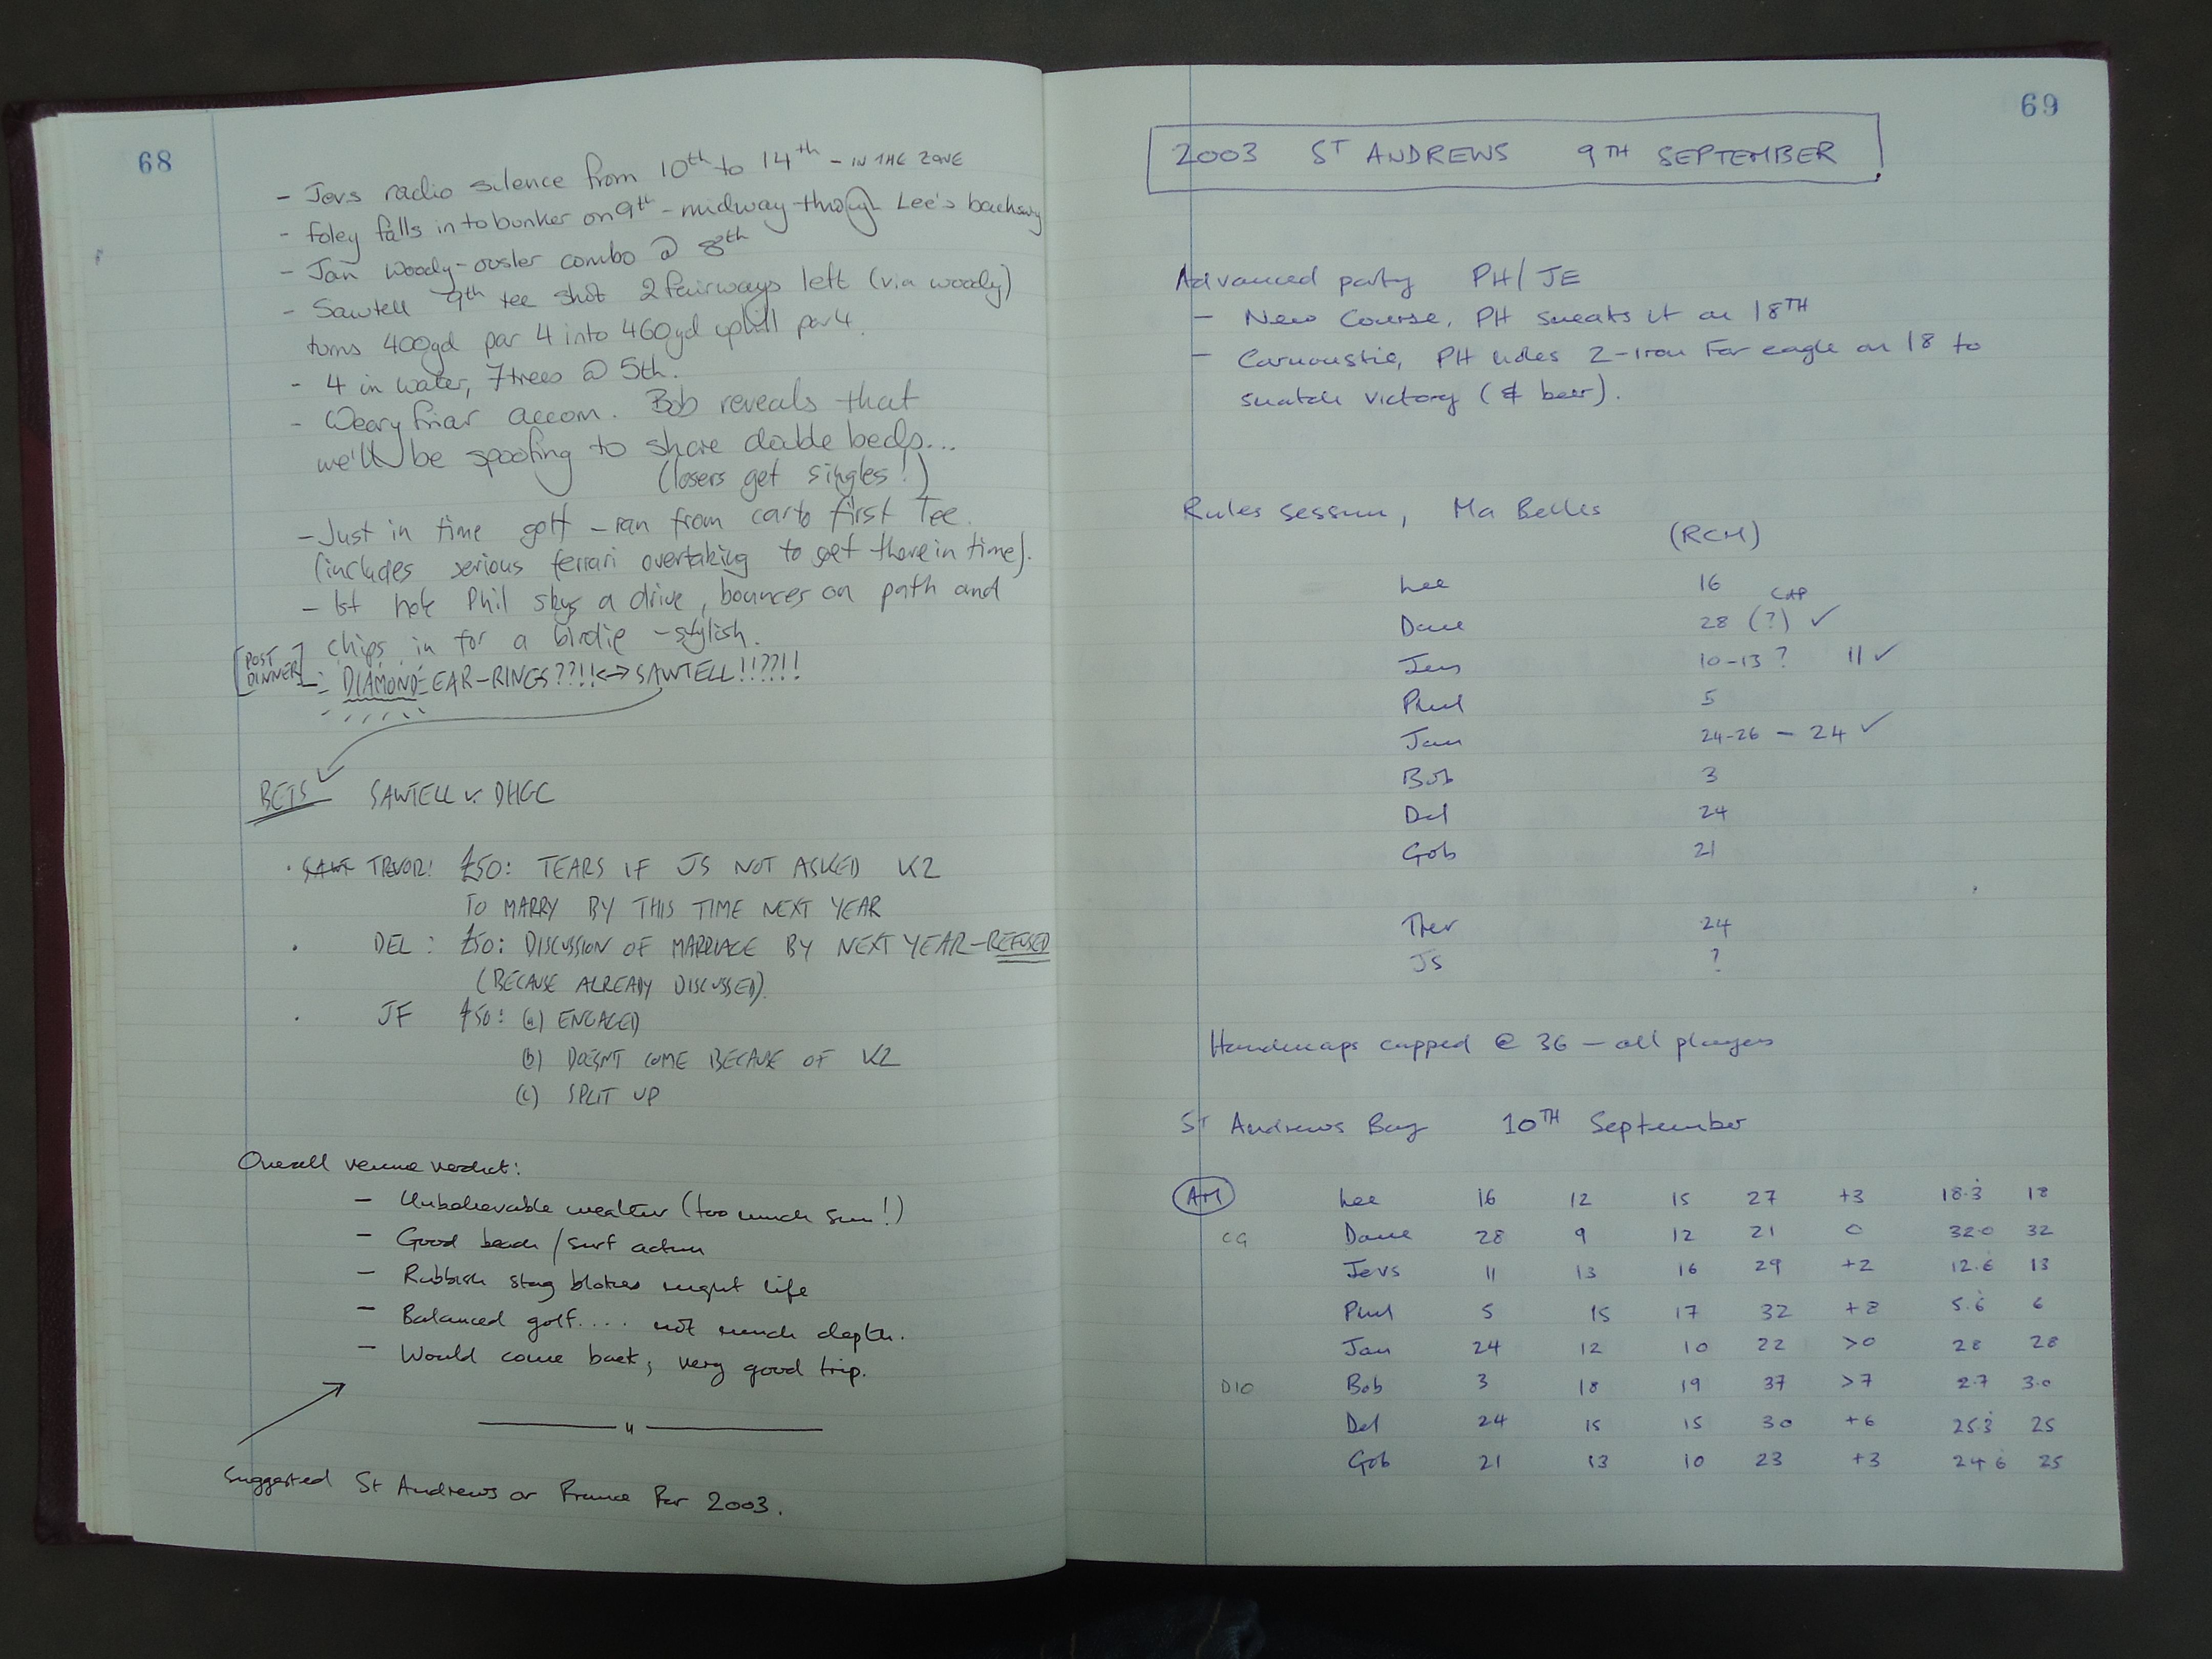 68
- Jevs radio silence from 10th to 14th - IN THE ZONE
- Foley falls into bunker on 9th - midway through Lee's backswing
- Jan Woody-ousler combo @ 8th
- Sawtell 9th tee shot 2 fairways left (via woody)
turns 400yd par 4 into 460yd uphill par 4.
- 4 in water, 7 trees @ 5th.
- Weary friar accom. Bob reveals that
we'll be spoofing to share double beds...
(losers get singles!)
- Just in time golf - ran from car to first Tee.
(includes serious ferrari overtaking to get there in time).
- 1st hole Phil skys a drive, bounces on path and
chips in for a birdie - stylish.
[POST DINNER] - DIAMOND EAR-RINGS??!!<->SAWTELL!!??!!
BETS SAWTELL v. DHGC
· TREVOR: £50: TEARS IF JS NOT ASKED K2
TO MARRY BY THIS TIME NEXT YEAR
· DEL: £50: DISCUSSION OF MARRIAGE BY NEXT YEAR - REFUSED
(BECAUSE ALREADY DISCUSSED).
· JF £50: (a) ENGAGED
(b) DOESNT COME BECAUSE OF K2
(c) SPLIT UP
Overall venue verdict:
- Unbelievable weather (too much sun!)
- Good beach / surf action
- Rubbish stag blokes night life
- Balanced golf.... not much depth.
- Would come back, very good trip.
Suggested St Andrews or France for 2003.
69
2003 ST ANDREWS 9TH SEPTEMBER
Advanced party PH/JE
- New Course, PH sneaks it on 18TH
- Carnoustie, PH holes 2-iron for eagle on 18 to
snatch victory (& beer).
Rules session, Ma Belles
(RCM)
Lee 16
Dave 28 (?) CAP ✓
Jevs 10-13? 11 ✓
Phil 5
Jan 24-26 - 24 ✓
Bob 3
Del 24
Gob 21
Ther 24
JS ?
Handicaps capped @ 36 - all players
St Andrews Bay 10TH September
AM Lee 16 12 15 27 +3 18.3 18
CG Dave 28 9 12 21 0 32.0 32
Jevs 11 13 16 29 +2 12.6 13
Phil 5 15 17 32 +8 5.6 6
Jan 24 12 10 22 >0 28 28
D10 Bob 3 18 19 37 >7 2.7 3.0
Del 24 15 15 30 +6 25.3 25
Gob 21 13 10 23 +3 24.6 25